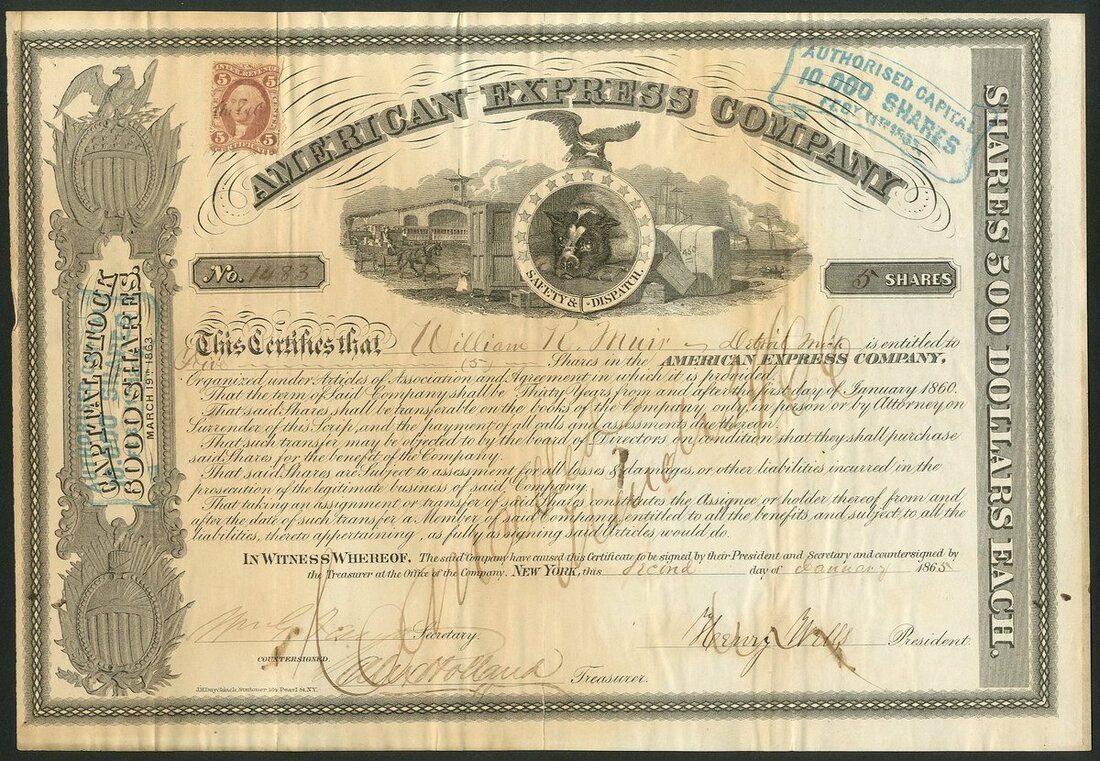 AMERICAN EXPRESS COMPANY
INTER. REVENUE
5 5
5 5
CERTIFICATE
AUTHORISED CAPITAL
10,000 SHARES
SAFETY & DISPATCH.
No. 1483
5 SHARES
CAPITAL STOCK
6000 SHARES
MARCH 19TH 1863
SHARES 500 DOLLARS EACH.
This Certifies that William K. Muir Detroit Mich is entitled to
Five (5) Shares in the AMERICAN EXPRESS COMPANY,
Organized under Articles of Association and Agreement in which it is provided.
That the term of said Company shall be Thirty Years from and after the first day of January 1860.
That said Shares shall be transferable on the books of the Company only, in person or by Attorney on
Surrender of this Scrip, and the payment of all calls and assessments due thereon.
That such transfer may be objected to by the board of Directors on condition that they shall purchase
said Shares for the benefit of the Company.
That said Shares are Subject to assessment for all losses & damages, or other liabilities incurred in the
prosecution of the legitimate business of said Company.
That taking an assignment or transfer of said Shares constitutes the Assignee or holder thereof from and
after the date of such transfer a Member of said Company entitled to all the benefits, and subject to all the
liabilities, thereto appertaining, as fully as signing said articles would do.
IN WITNESS WHEREOF, The said Company have caused this Certificate to be signed by their President and Secretary and countersigned by
the Treasurer at the Office of the Company. NEW YORK, this Second day of January 1865
Secretary.
Henry Wells President.
COUNTERSIGNED.
Alex Holland Treasurer.
J.H. Duyckinck, Stationer 164 Pearl St. N.Y.